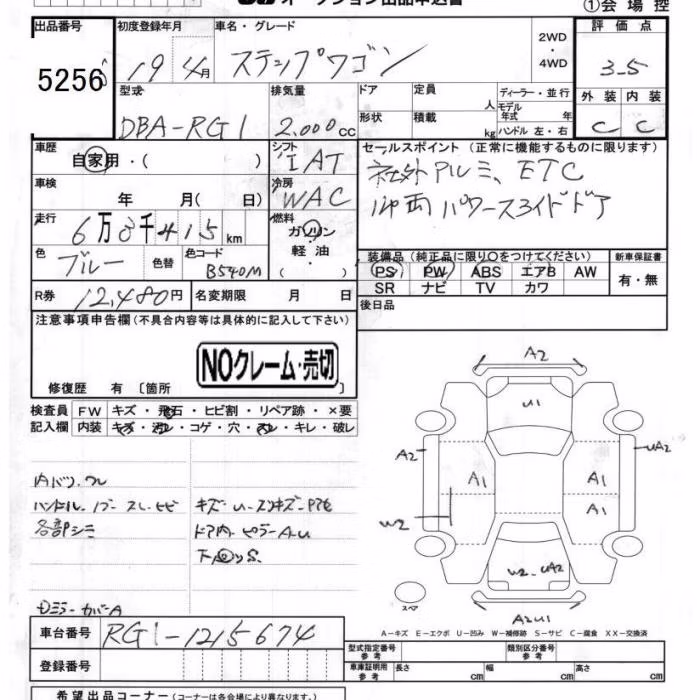 オークション出品申込書
①会場控
出品番号 初度登録年月 車名・グレード 2WD・4WD 評価点
5256 19 4月 ステップワゴン 3-5
型式 排気量 ドア 定員 人 ディーラー・並行 外装 内装
DBA-RG1 2.000cc 形状 積載 kg モデル年式 年 ハンドル 左・右 C C
車歴 シフト セールスポイント (正常に機能するものに限ります)
自家用・( ) IAT 社外アルミ、ETC
車検 年 月( 日) 冷房 WAC 両パワースライドドア
走行 6万3千415km 燃料 ガソリン・軽油・( )
色 ブルー 色替 色コード B540M
装備品 (純正品に限り○をつけてください) 新車保証書
PS PW ABS エアB AW 有・無
SR ナビ TV カワ
R券 12,480円 名変期限 月 日 後日品
注意事項申告欄 (不具合内容等は具体的に記入して下さい)
NOクレーム・売切
修復歴 有 〔箇所 〕
検査員 FW キズ・飛石・ヒビ割・リペア跡・×要
記入欄 内装 キズ・汚レ・コゲ・穴・スレ・キレ・破レ
ハンドル
各部シミ
ドア内・ピラーA.U
下回りS.
Dミラーカバー A
A2
U1
A2 A1 A1 UA2
A1
W2
W2 UA2
スペア
A2U1
A－キズ E－エクボ U－凹み W－補修跡 S－サビ C－腐食 XX－交換済
車台番号 RG1-1215674
型式指定番号 参考 類別区分番号 参考
登録番号 車庫証明用 参考 長さ cm 幅 cm 高さ cm
希望出品コーナー (コーナーは各会場により異なります。)